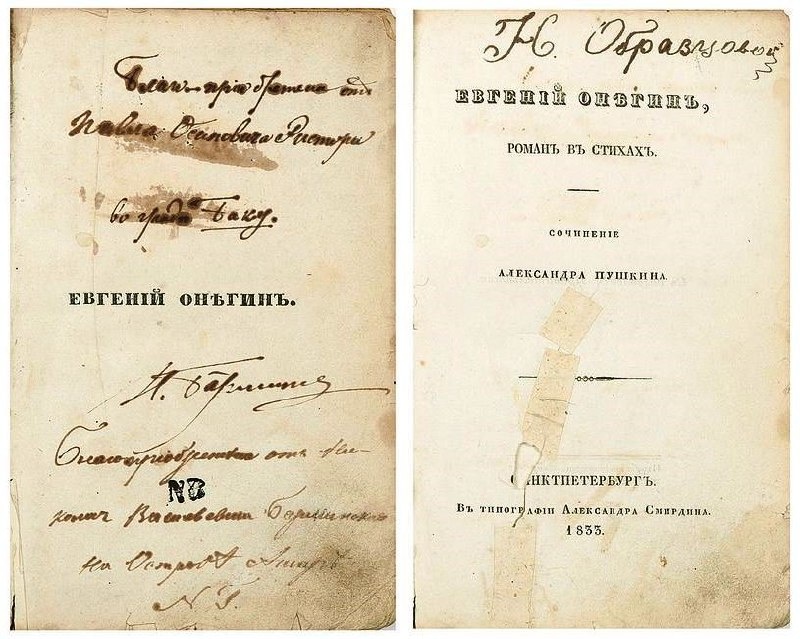 Благопріобретена отъ
Павла Осиповича
во граде Баку.
ЕВГЕНІЙ ОНѢГИНЪ.
Благопріобретена отъ Ни-
NB
колая Васильевича
на Острове
N
Н. Образцовой
ЕВГЕНІЙ ОНѢГИНЪ,
РОМАНЪ ВЪ СТИХАХЪ.
СОЧИНЕНІЕ
АЛЕКСАНДРА ПУШКИНА.
САНКТПЕТЕРБУРГЪ.
Въ типографіи Александра Смирдина.
1833.